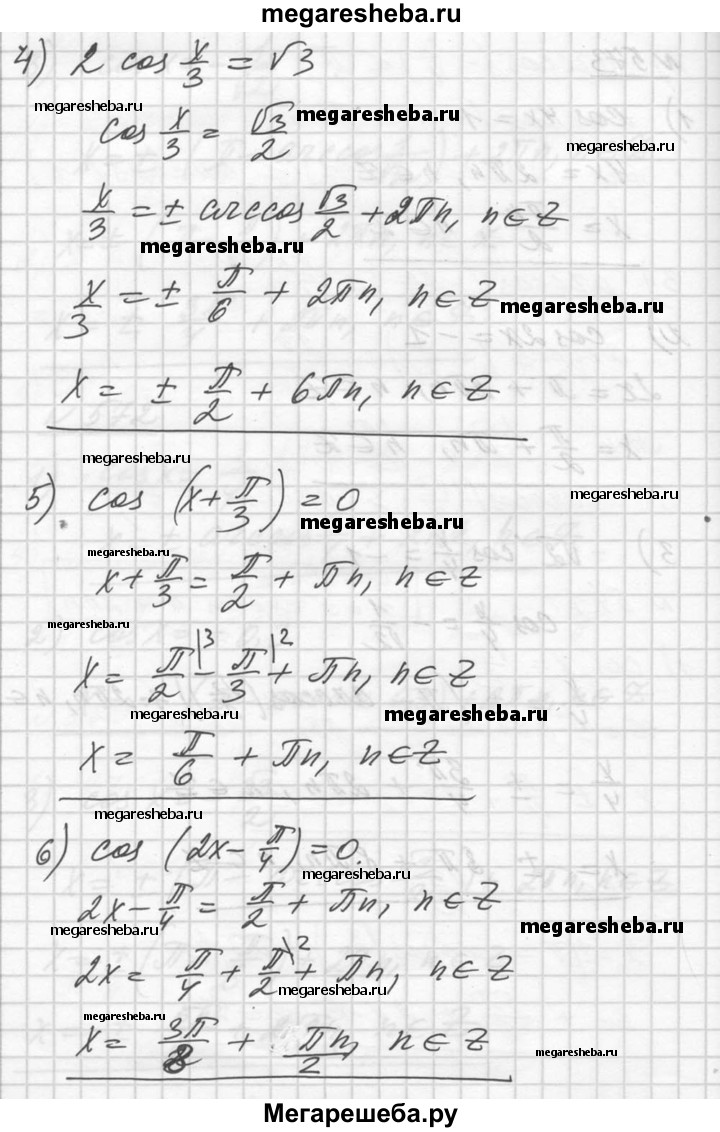 megaresheba.ru
4) 2 cos x/3 = √3
megaresheba.ru
cos x/3 = √3/2
megaresheba.ru
megaresheba.ru
x/3 = ± arccos √3/2 + 2πn, n ∈ Z
megaresheba.ru
x/3 = ± π/6 + 2πn, n ∈ Z
megaresheba.ru
x = ± π/2 + 6πn, n ∈ Z
megaresheba.ru
5) cos (x + π/3) = 0
megaresheba.ru
megaresheba.ru
megaresheba.ru
x + π/3 = π/2 + πn, n ∈ Z
megaresheba.ru
x = π/2\3 - π/3\2 + πn, n ∈ Z
megaresheba.ru
megaresheba.ru
x = π/6 + πn, n ∈ Z
megaresheba.ru
6) cos (2x - π/4) = 0.
megaresheba.ru
2x - π/4 = π/2 + πn, n ∈ Z
megaresheba.ru
megaresheba.ru
2x = π/4 + π/2\2 + πn, n ∈ Z
megaresheba.ru
x = 3π/8 + πn/2, n ∈ Z
megaresheba.ru
Мегарешеба.ру